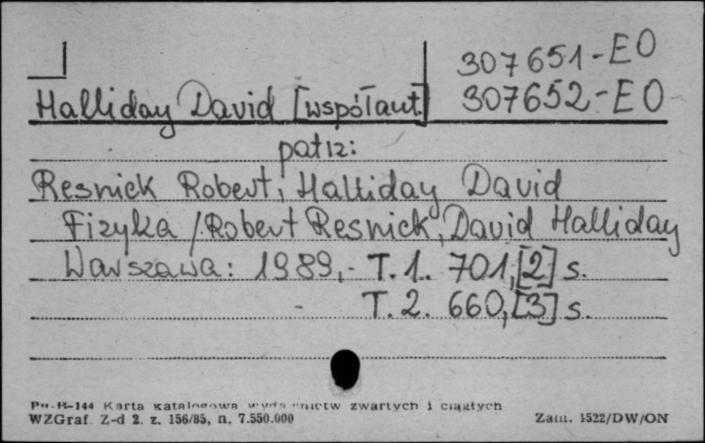 307651-EO
Halliday David [współaut.] 307652-EO
patrz:
Resnick Robert, Halliday David
Fizyka / Robert Resnick, David Halliday
Warszawa: 1989,- T. 1. 701,[2] s.
T. 2. 660,[3] s.
Pu-B-144 Karta katalogowa wydawnictw zwartych i ciągłych
WZGraf. Z-d 2. z. 156/85, n. 7.550.000 Zam. 1522/DW/ON